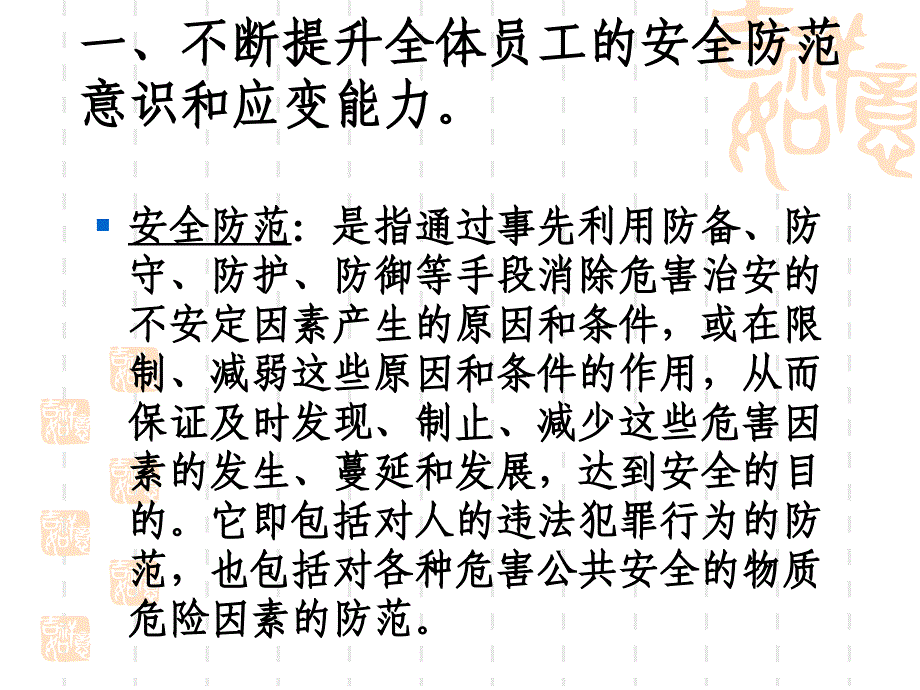 一、不断提升全体员工的安全防范
意识和应变能力。
安全防范：是指通过事先利用防备、防
守、防护、防御等手段消除危害治安的
不安定因素产生的原因和条件，或在限
制、减弱这些原因和条件的作用，从而
保证及时发现、制止、减少这些危害因
素的发生、蔓延和发展，达到安全的目
的。它即包括对人的违法犯罪行为的防
范，也包括对各种危害公共安全的物质
危险因素的防范。
吉祥如意
吉祥如意
吉祥如意
吉祥如意